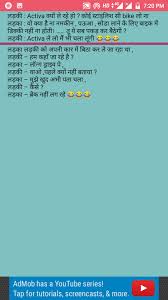 7:20 PM
लड़की : Activa क्यों ले रहे हो ? कोई स्टाइलिश सी bike लो ना
लड़का : वो क्या है ना नमकीन , पऊआ , सोडा लाने के लिए बाइक में
डिक्की नहीं ना होती! .... तू ये सब पकड़ कर बैठेगी ?
लड़की : Activa ले लो मैं भी चला लूंगी 😂😂😂
लड़का लड़की को अपनी कार में बिठा कर ले जा रहा था ,
लड़की – हम कहाँ जा रहे है ?
लड़का – लॉन्ग ड्राइव पे ,
लड़की – वाओ ,पहले क्यों नहीं बताया ?
लड़का – मुझे खुद अभी पता चला ,
लड़की – कैसे ?
लड़का – ब्रेक नहीं लग रहे 😂😂😂
AdMob has a YouTube series!
Tap for tutorials, screencasts, & more